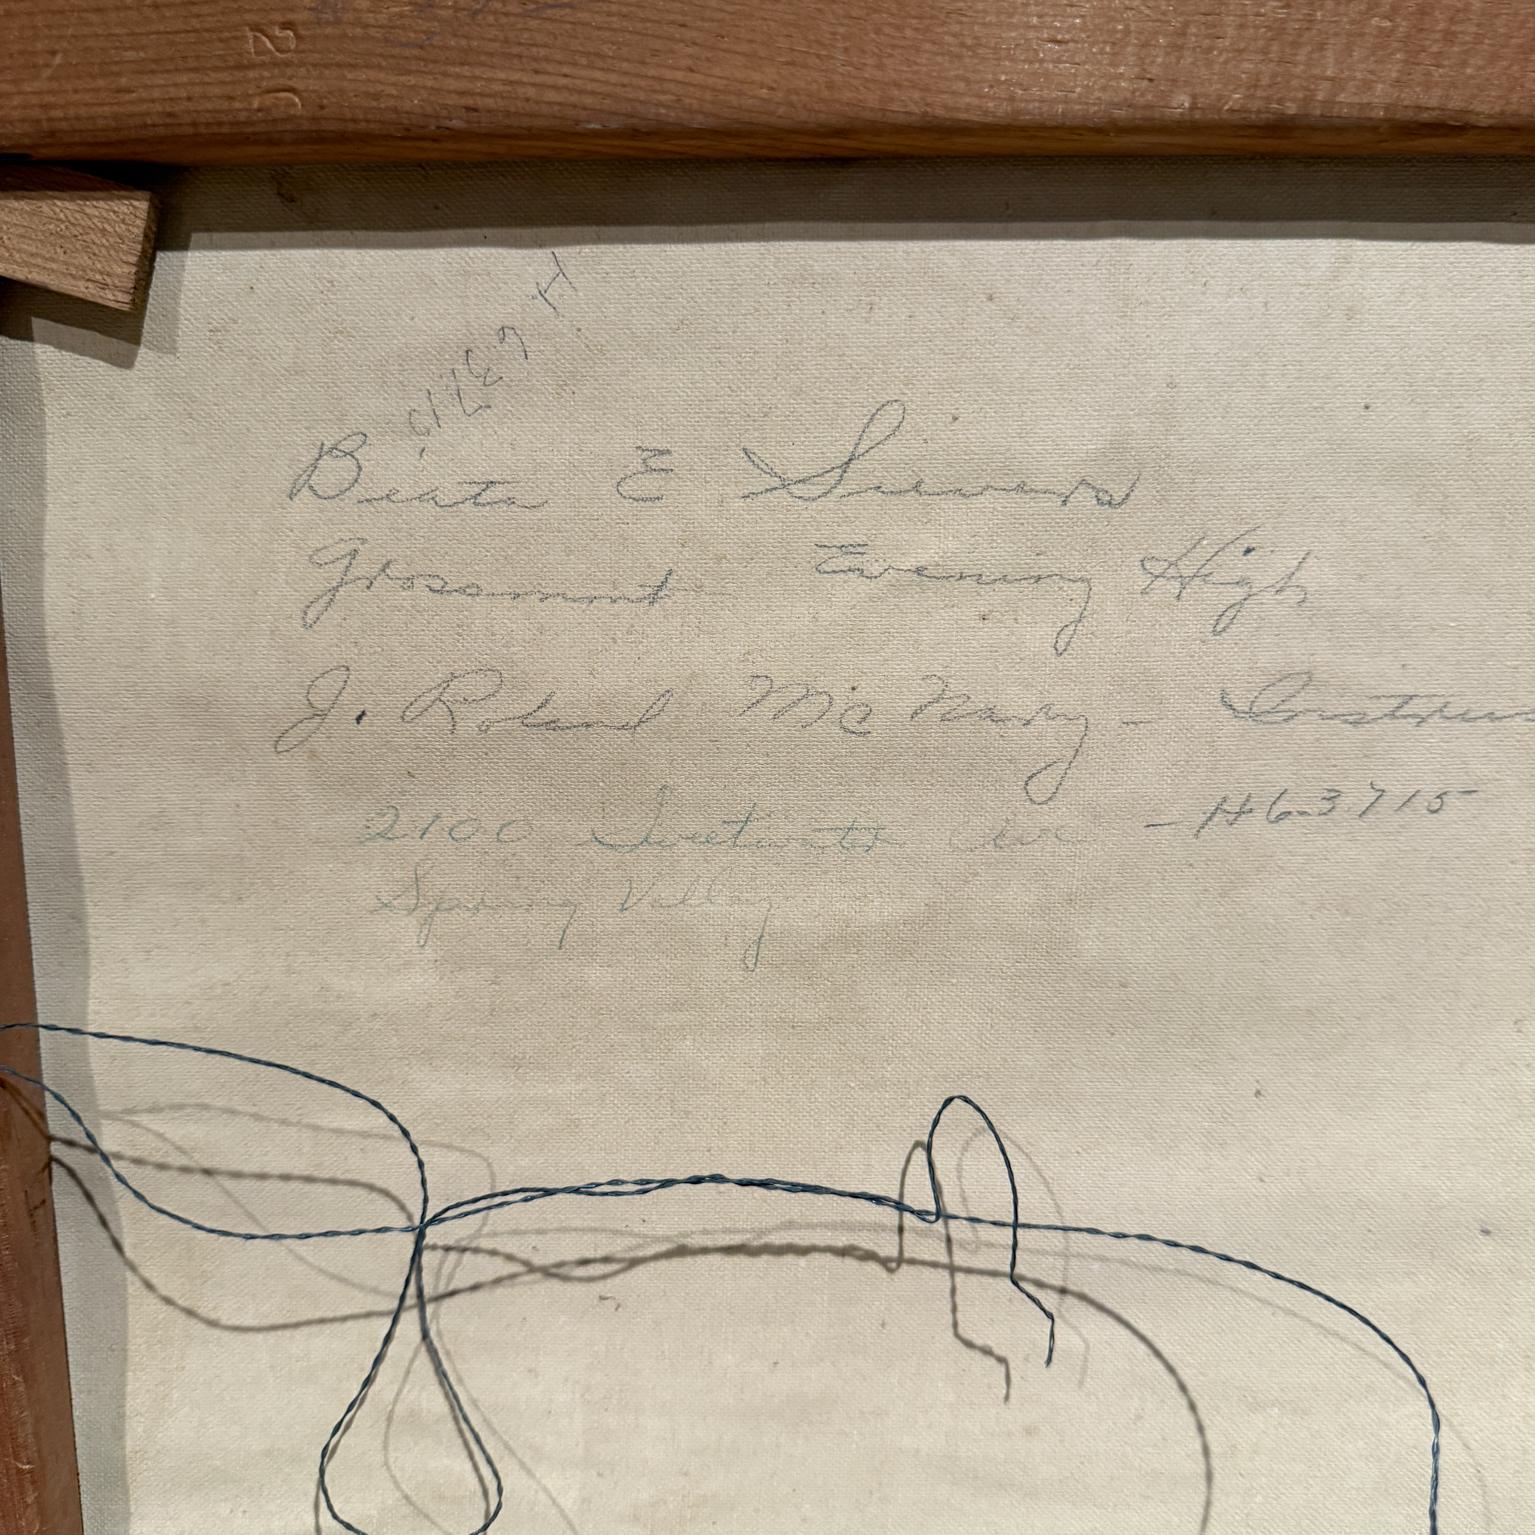 H 63715
Beata E Sievers
Grossmont Evening High
J. Roland McNary -
2100 Sweetwater Ave - H63715
Spring Valley